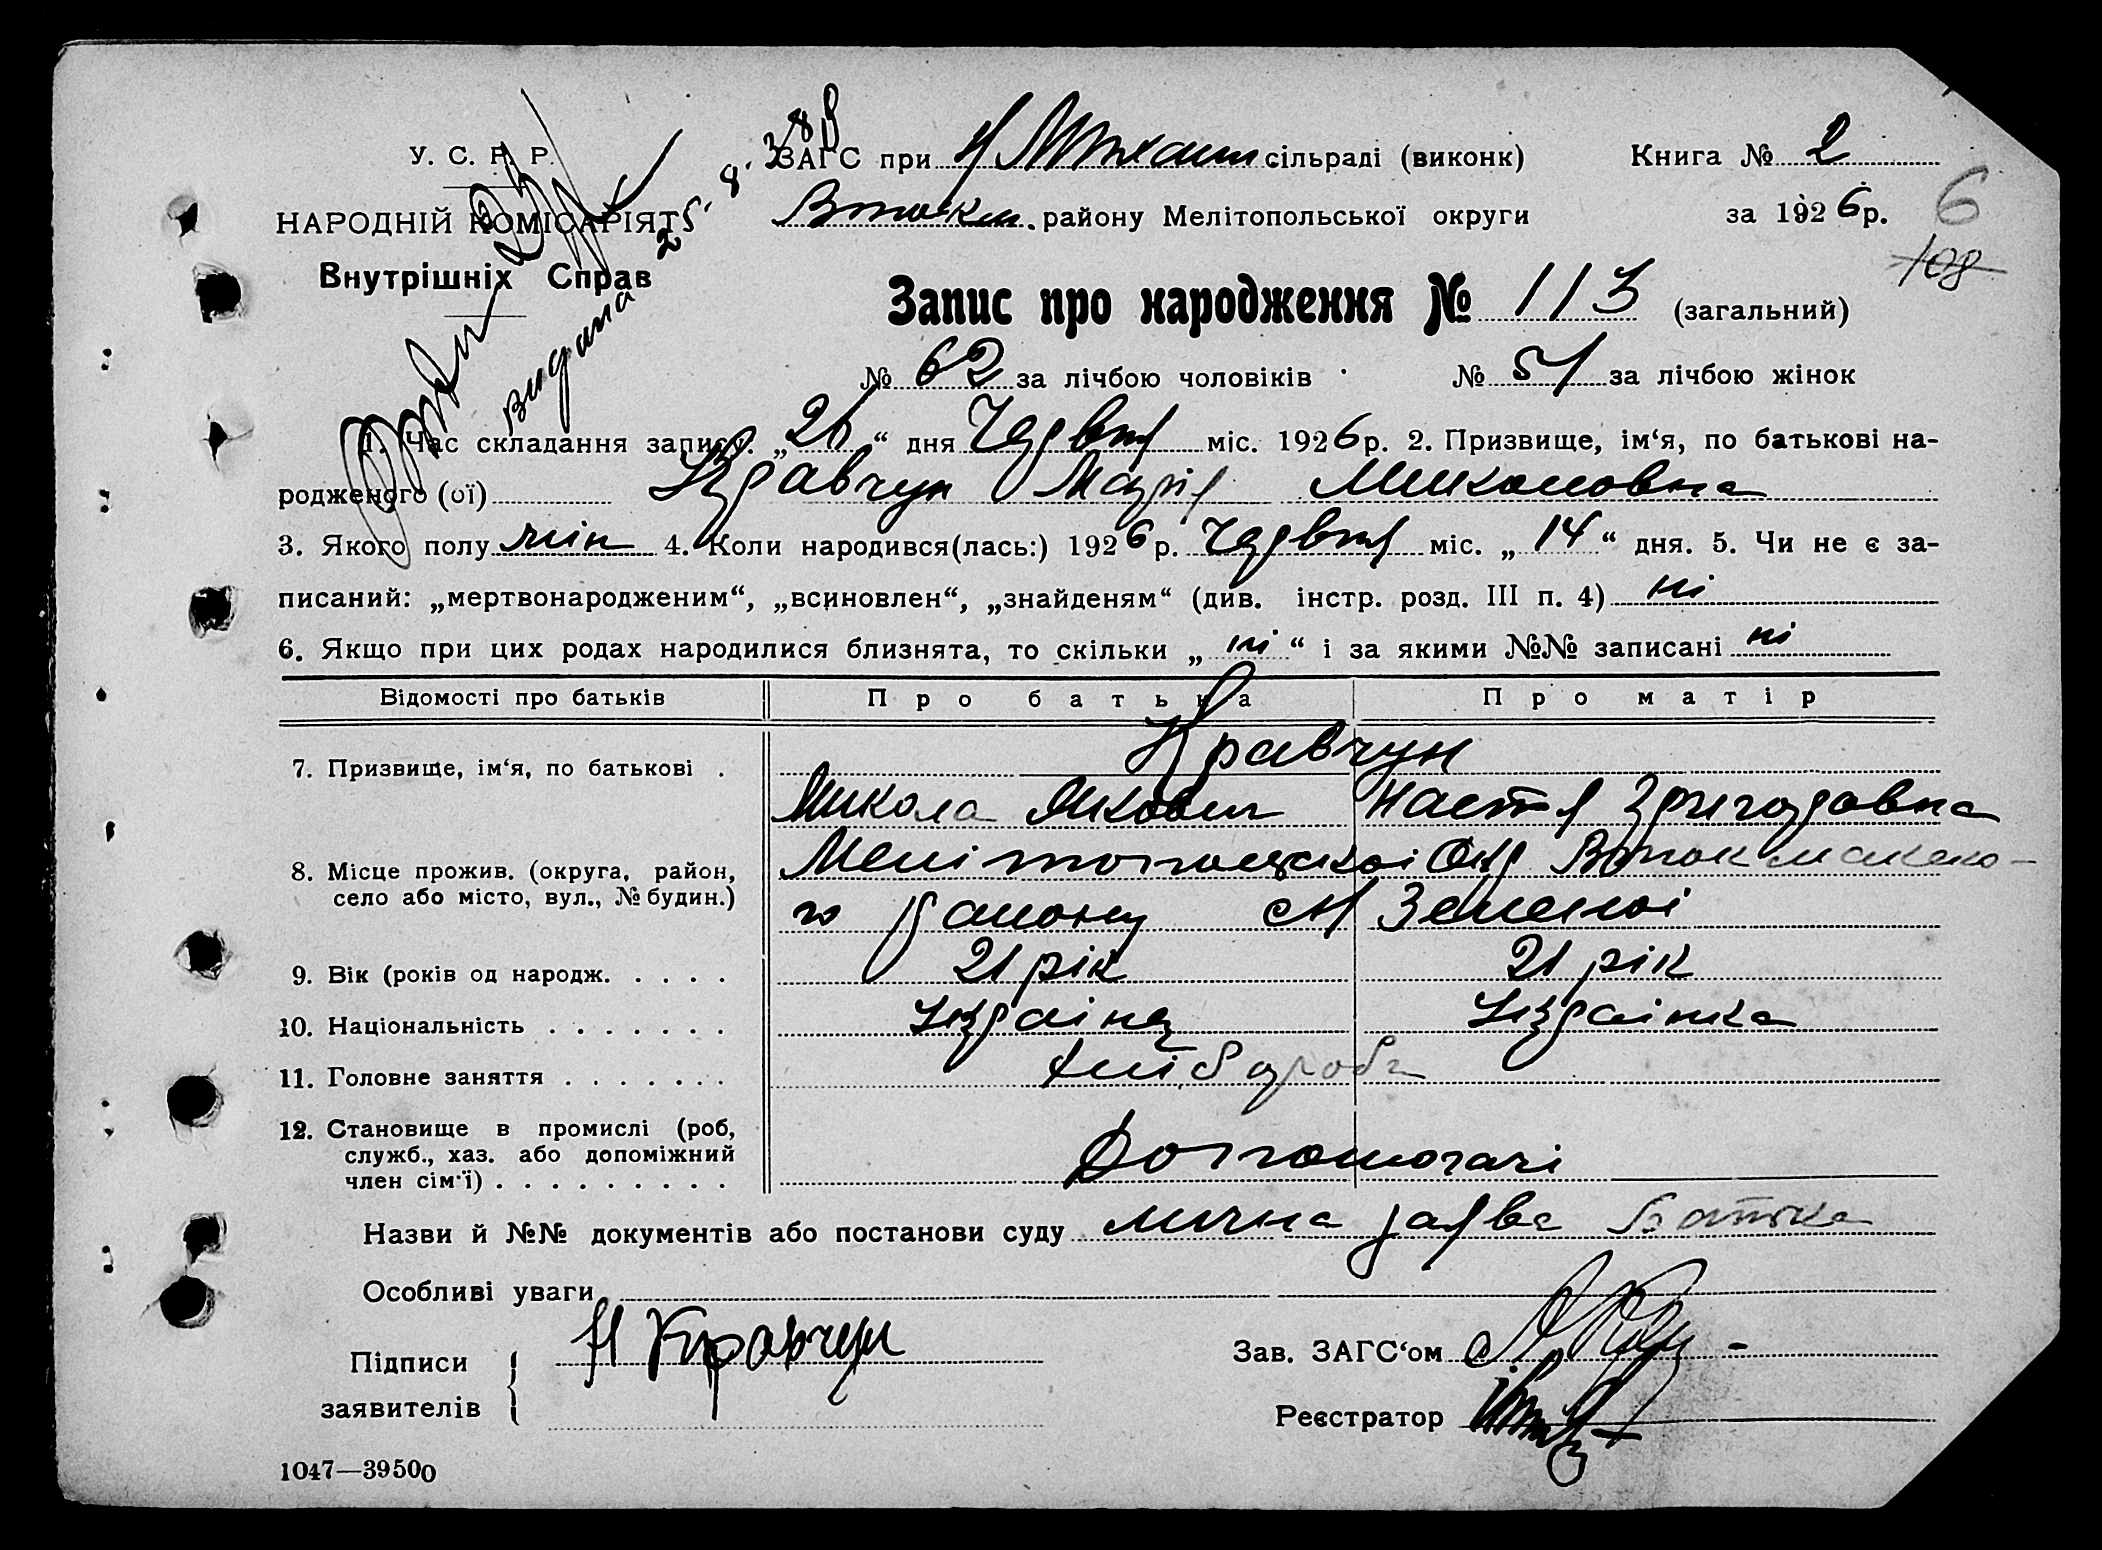 У. С. Р. Р.
НАРОДНІЙ КОМІСАРІЯТ
Внутрішніх Справ
видана 25. 8. 38 р
ЗАГС при сільраді (виконк) Книга № 2
В-Токм. району Мелітопольської округи за 1926 р.
6
108
Запис про народження № 113 (загальний)
№ 62 за лічбою чоловіків № 51 за лічбою жінок
1. Час складання запису. „26“ дня Червня міс. 1926 р. 2. Призвище, ім‘я, по батькові на-
родженого (ої) Кравчун Марія Миколовна
3. Якого полу жін 4. Коли народився(лась:) 1926 р. Червня міс. „14“ дня. 5. Чи не є за-
писаний: „мертвонародженим“, „всиновлен“, „знайденям“ (див. інстр. розд. III п. 4) ні
6. Якщо при цих родах народилися близнята, то скільки „ні“ і за якими №№ записані ні
Відомості про батьків Про батька Про матір
7. Призвище, ім‘я, по батькові . Кравчун
Микола Якович Настя Григоровна
8. Місце прожив. (округа, район, село або місто, вул., № будин.) Мелітопольскої Окр В-Токмакско-
го району с Зеленої
9. Вік (років од народж. . . . . 21 рік 21 рік
10. Національність . . . . . . . Українец Українка
11. Головне заняття . . . . . . . хлібороби
12. Становище в промислі (роб,
служб., хаз. або допоміжний
член сім‘ї) . . . . . . . . . Допомогачі
Назви й №№ документів або постанови суду лична заява батька
Особливі уваги
Підписи Н Кравчун Зав. ЗАГС‘ом
заявителів Реєстратор
1047—39500